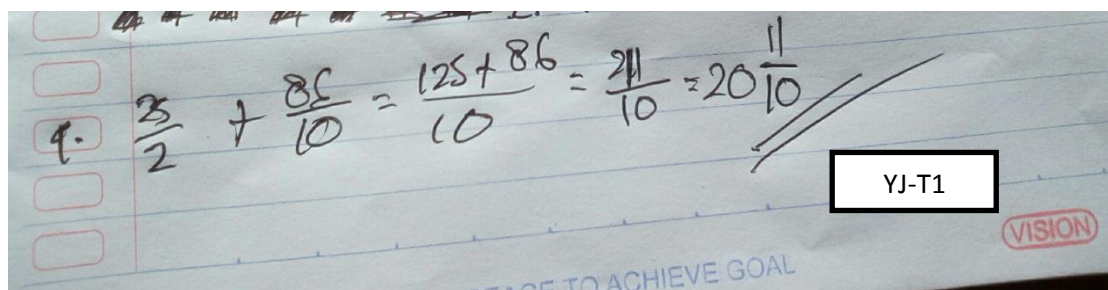 9. 25/2 + 86/10 = 125+86/10 = 211/10 = 20 11/10
YJ-T1
VISION
TO ACHIEVE GOAL